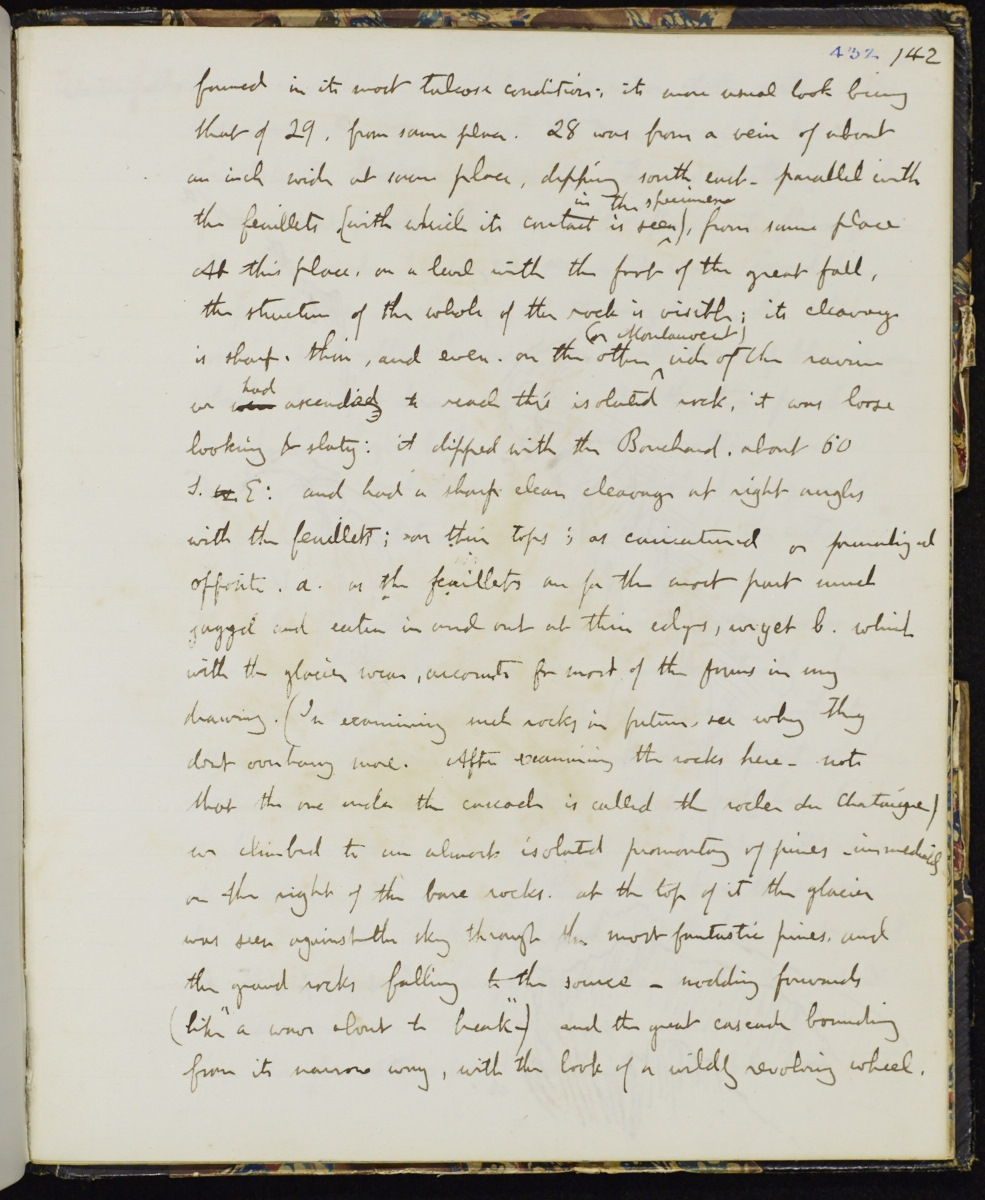 432 142
formed in its most talcose condition; its more usual look being
that of 29, from same place. 28 was from a vein of about
an inch wide at same place, dipping south east - parallel with
in the specimen
the feuillets (with which its contact is seen), from same place
At this place, on a level with the foot of the great fall,
the structure of the whole of the rock is visible; its cleavage
(or Montanvert)
is sharp, thin, and even. on the other side of the ravine
had
we ascended to reach this isolated rock, it was loose
looking & slaty: it dipped with the Bouchard, about 60
S. E: and had a sharp clean cleavage at right angles
with the feuillets; on their tops; as caricatured or
opposite. a. as the feuillets are for the most part much
jagged and eaten in and out at their edges, we get b. which
with the glacier wear, accounts for most of the forms in my
drawing. (In examining such rocks in future see why they
dont overhang more. After examining the rocks here - note
that the one under the cascade is called the rocher du Chataigne)
we climbed to an almost isolated promontory of pines immediately
on the right of the bare rocks. at the top of it the glacier
was seen against the sky through the most fantastic pines, and
the grand rocks falling to the source - nodding forwards
(like "a wave about to break"-) and the great cascade bounding
from its narrow way, with the look of a wildly revolving wheel.